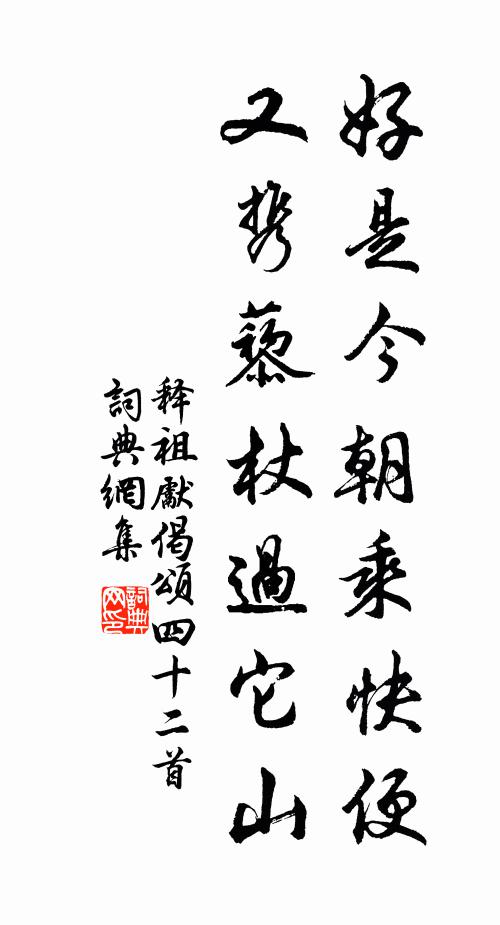 好是今朝乘快便
又携藜杖過它山
释祖獻偈頌四十二首
詞典網集
詞典网印